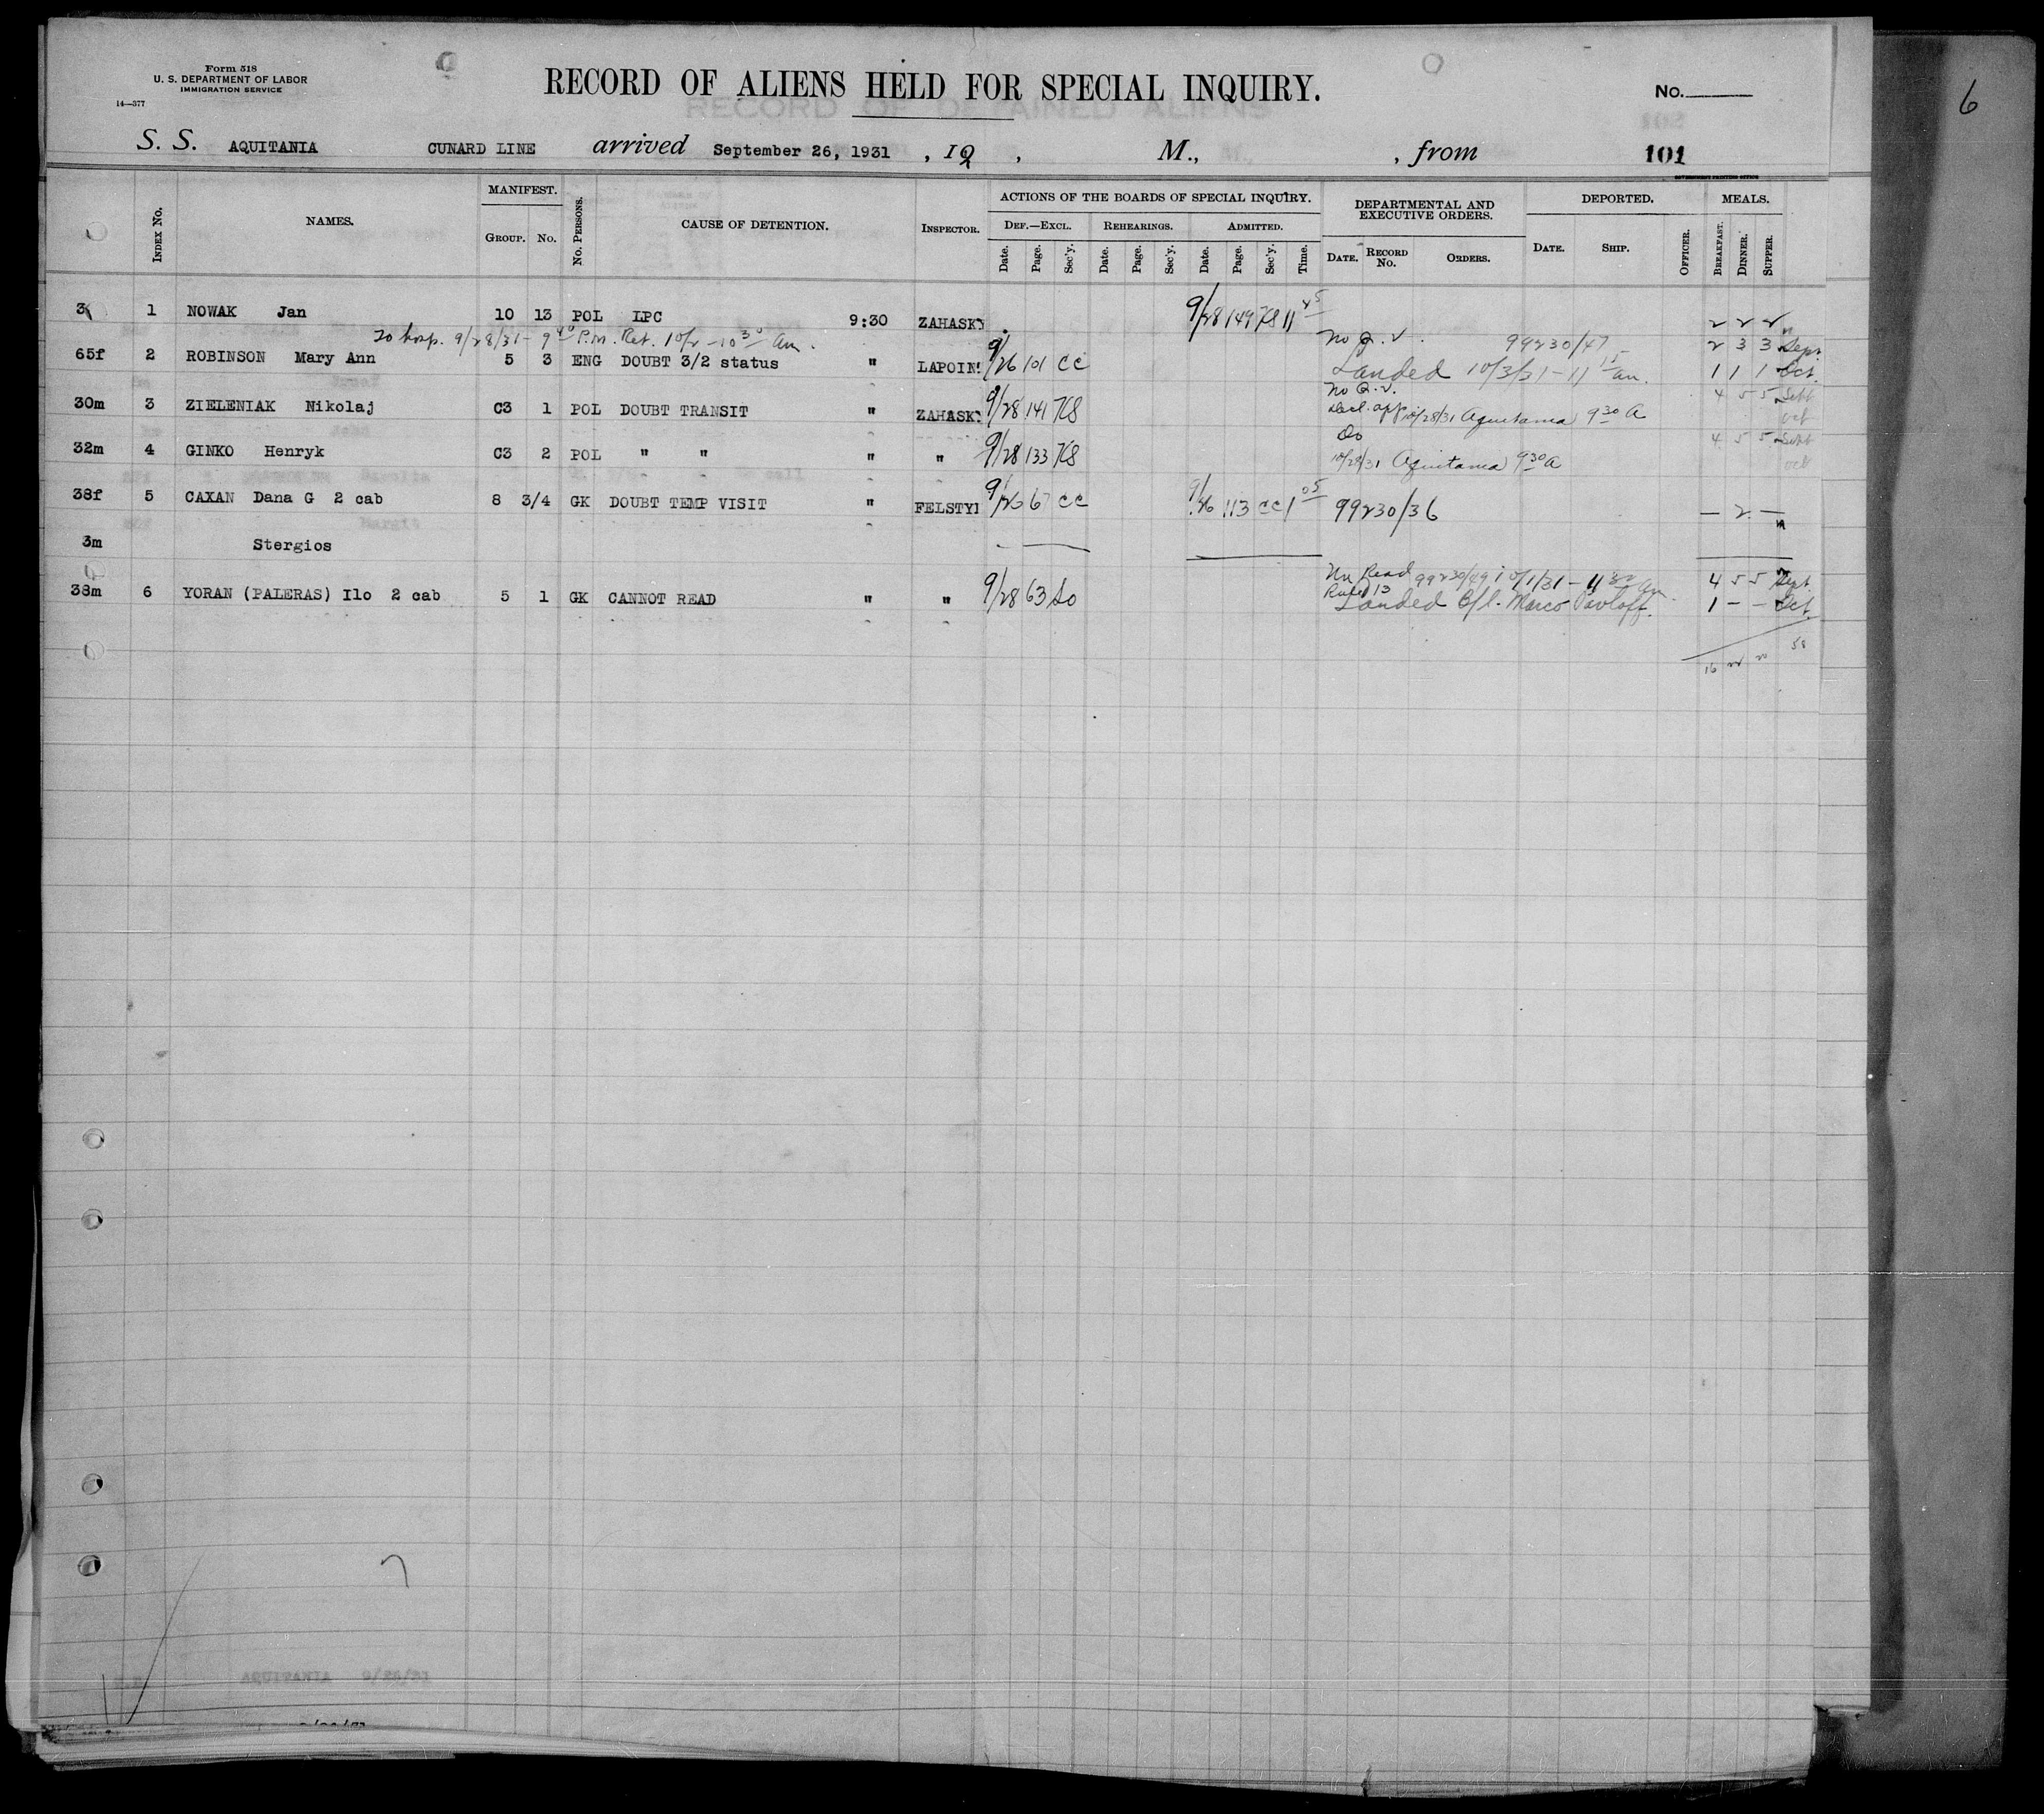 6
Form 518
U. S. DEPARTMENT OF LABOR
IMMIGRATION SERVICE
14—577
RECORD OF ALIENS HELD FOR SPECIAL INQUIRY.
No.
S. S. AQUITANIA CUNARD LINE arrived September 26, 1931 , 19 , M., , from 101
GOVERNMENT PRINTING OFFICE
INDEX No. NAMES. MANIFEST. GROUP. No. No. PERSONS. CAUSE OF DETENTION. INSPECTOR.
ACTIONS OF THE BOARDS OF SPECIAL INQUIRY. DEF.—EXCL. REHEARINGS. ADMITTED.
Date. Page. Sec'y. Date. Page. Sec'y. Date. Page. Sec'y. Time.
DEPARTMENTAL AND EXECUTIVE ORDERS. DATE. RECORD No. ORDERS.
DEPORTED. DATE. SHIP. OFFICER.
MEALS. BREAKFAST. DINNER. SUPPER.
3 1 NOWAK Jan 10 13 POL LPC 9:30 ZAHASKY 9/28 149 KS 11 45 2 2 2
To hosp. 9/28/31 - 9 40 P.M. Ret. 10/2 - 10 30 am. No Q.V. 99230/47 2 3 3 Sept.
65f 2 ROBINSON Mary Ann 5 3 ENG DOUBT 3/2 status " LAPOINS 9/26 101 CC Landed 10/3/31 - 11 15 am. 1 1 1 Oct.
No Q.V. 4 5 5 Sept
30m 3 ZIELENIAK Nikolaj C3 1 POL DOUBT TRANSIT " ZAHASKY 9/28 141 KS Decl. app 10/28/31 Aquitania 9 30 A oct
Do 4 5 5 Sept
32m 4 GINKO Henryk C3 2 POL " " " " 9/28 133 KS 10/28/31 Aquitania 9 30 A oct
38f 5 CAXAN Dana G 2 cab 8 3/4 GK DOUBT TEMP VISIT " FELSTYN 9/26 67 CC 9/26 113 CC 1 05 99230/36 — 2 —
3m Stergios
Un Read 99230/49 10/1/31 - 11 30 am. 4 5 5 Sept.
Rule 13
38m 6 YORAN (PALERAS) Ilo 2 cab 5 1 GK CANNOT READ " " 9/28 63 So Landed B/l. Marco Pavloff. 1 - - Oct.
16 22 20 58